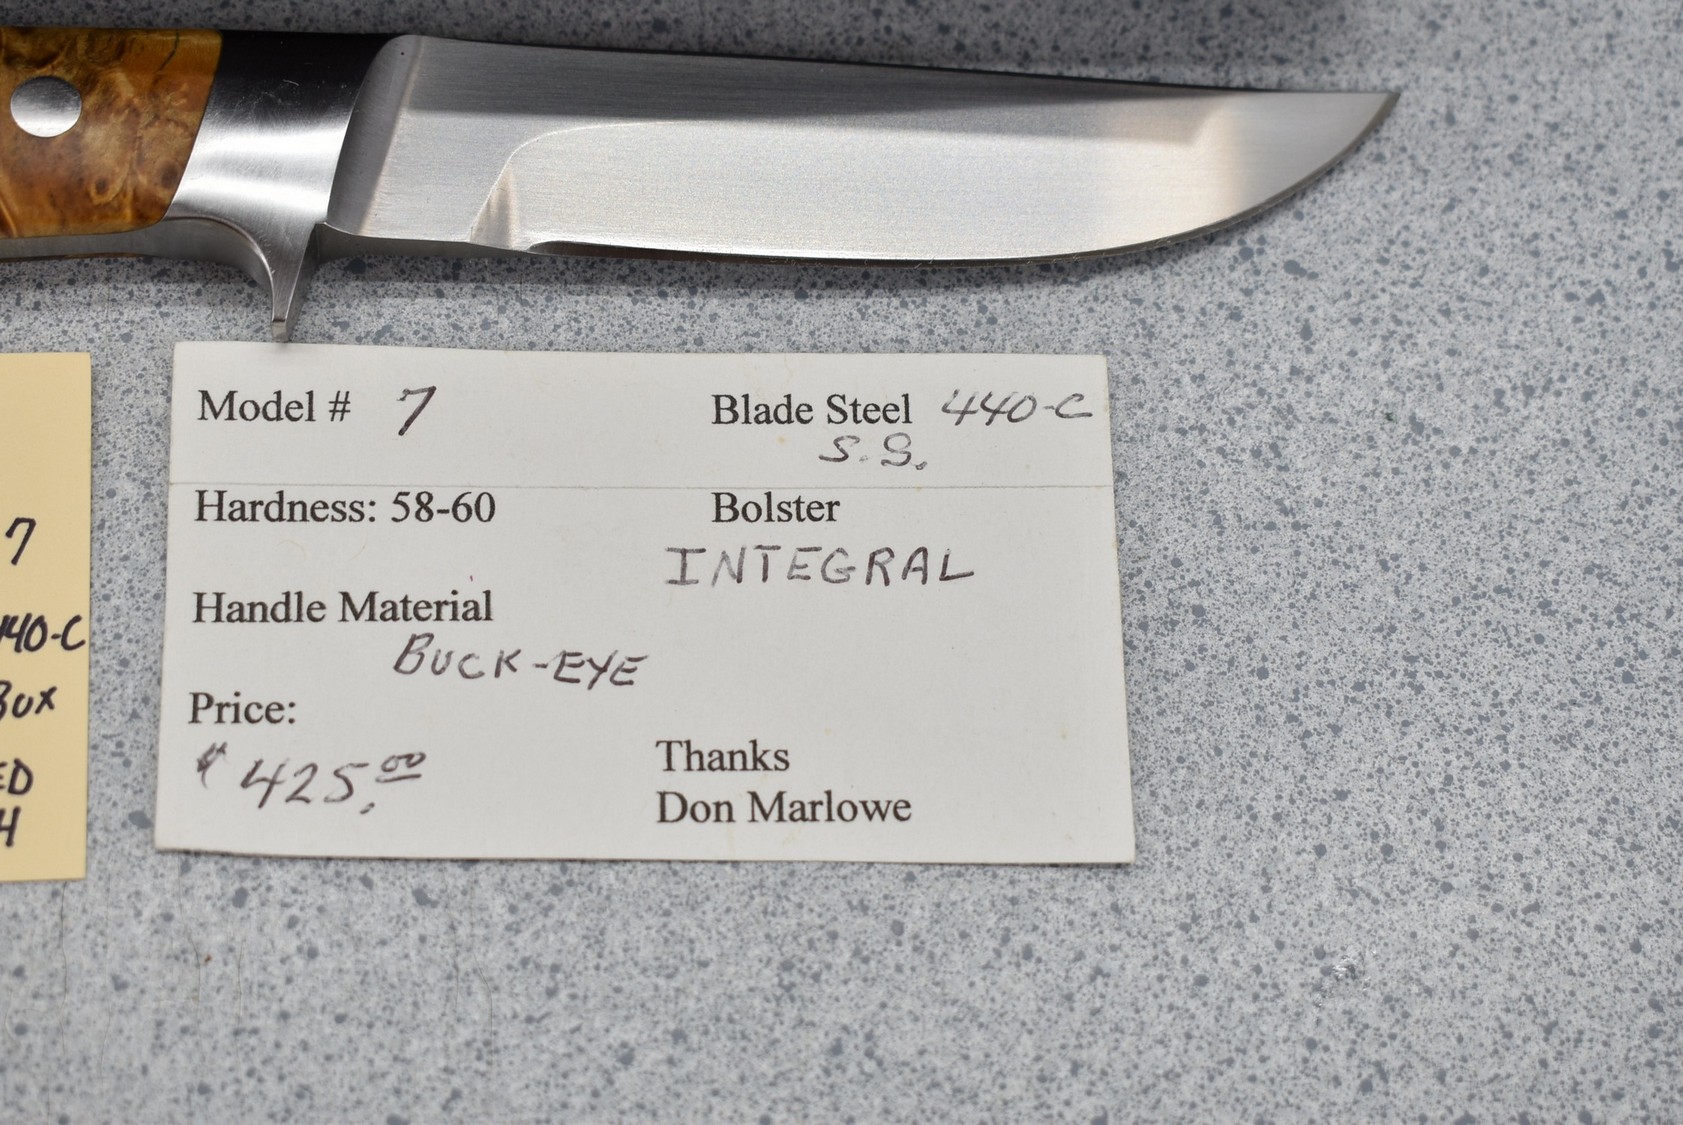 Model # 7
Blade Steel 440-C
S.S.
Hardness: 58-60
Bolster
INTEGRAL
Handle Material
BUCK-EYE
Price:
$425.00
Thanks
Don Marlowe
7
40-C